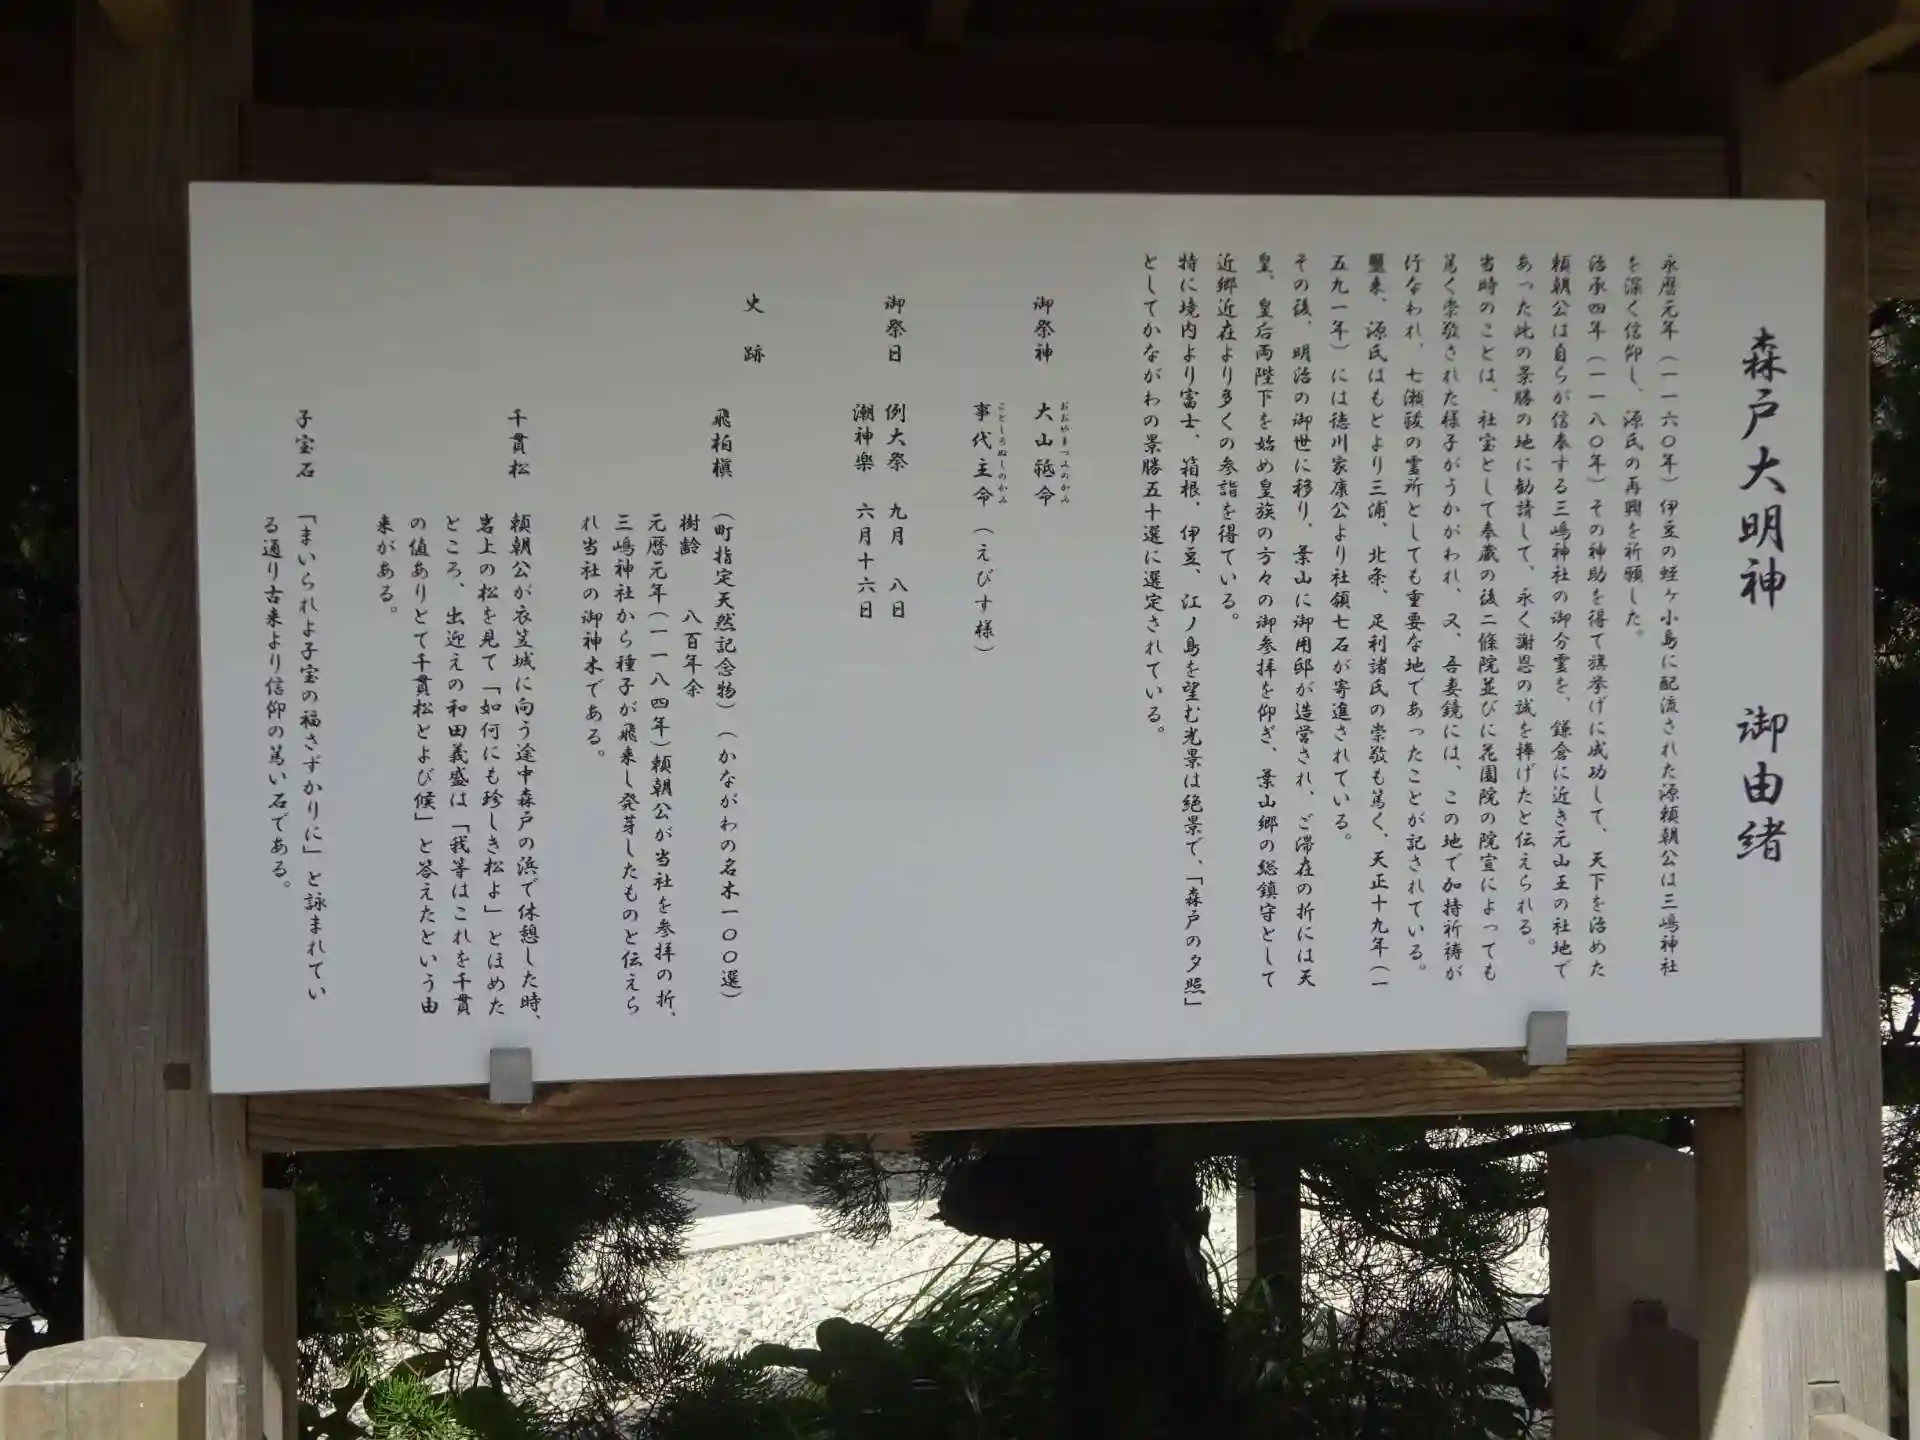 森戸大明神 御由緒
永暦元年（一一六〇年）伊豆の蛭ヶ小島に配流された源頼朝公は三嶋神社
を深く信仰し、源氏の再興を祈願した。
治承四年（一一八〇年）その神助を得て旗挙げに成功して、天下を治めた
頼朝公は自らが信奉する三嶋神社の御分霊を、鎌倉に近き元山王の社地で
あった此の景勝の地に勧請して、永く謝恩の誠を捧げたと伝えられる。
当時のことは、社宝として奉蔵の後二條院並びに花園院の院宣によっても
篤く崇敬された様子がうかがわれ、又、吾妻鏡には、この地で加持祈祷が
行なわれ、七瀬祓の霊所としても重要な地であったことが記されている。
爾来、源氏はもとより三浦、北条、足利諸氏の崇敬も篤く、天正十九年（一
五九一年）には徳川家康公より社領七石が寄進されている。
その後、明治の御世に移り、葉山に御用邸が造営され、ご滞在の折には天
皇、皇后両陛下を始め皇族の方々の御参拝を仰ぎ、葉山郷の総鎮守として
近郷近在より多くの参詣を得ている。
特に境内より富士、箱根、伊豆、江ノ島を望む光景は絶景で、「森戸の夕照」
としてかながわの景勝五十選に選定されている。
御祭神 大山祗命
おおやまつみのかみ
事代主命（えびす様）
ことしろぬしのかみ
御祭日 例大祭 九月 八日
潮神楽 六月十六日
史 跡
飛柏槇 （町指定天然記念物）（かながわの名木一〇〇選）
樹齢 八百年余
元暦元年（一一八四年）頼朝公が当社を参拝の折、
三嶋神社から種子が飛来し発芽したものと伝えら
れ当社の御神木である。
千貫松 頼朝公が衣笠城に向う途中森戸の浜で休憩した時、
岩上の松を見て「如何にも珍しき松よ」とほめた
ところ、出迎えの和田義盛は「我等はこれを千貫
の値ありとて千貫松とよび候」と答えたという由
来がある。
子宝石 「まいられよ子宝の福さずかりに」と詠まれてい
る通り古来より信仰の篤い石である。